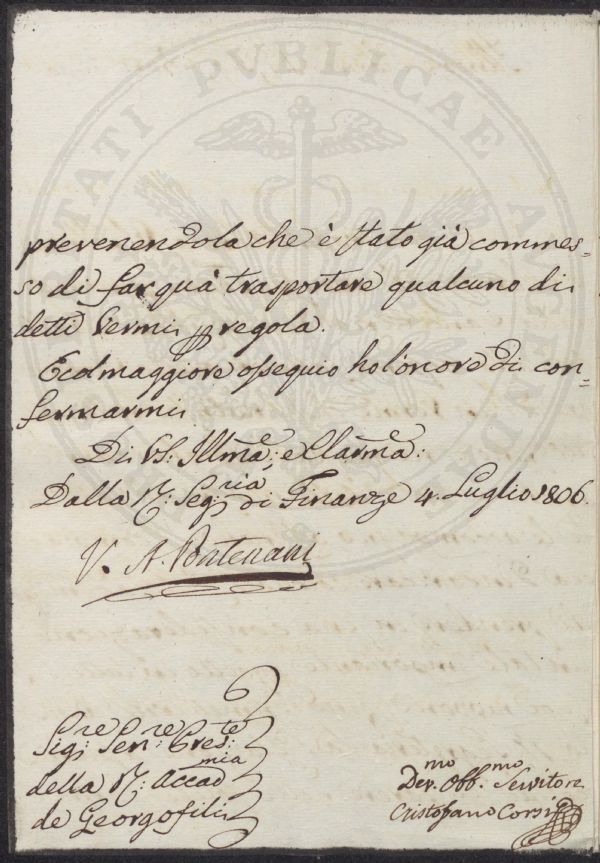 prevenendola che è stato già commes=
so di far quà trasportare qualcuno di
detti Vermi regola.
Ecol maggiore ossequio hol'onore di con=
fermarmi
Di VS: Illma: e Clarma:
Dalla R: Seg:ria di Finanze 4. Luglio 1806.
V. A.
Sig:re Sen:re Pres:te
della R: Accad:mia
de Georgofili
Dev.mo Obb.mo Servitore
Cristofano Corsi
PVBLICAE